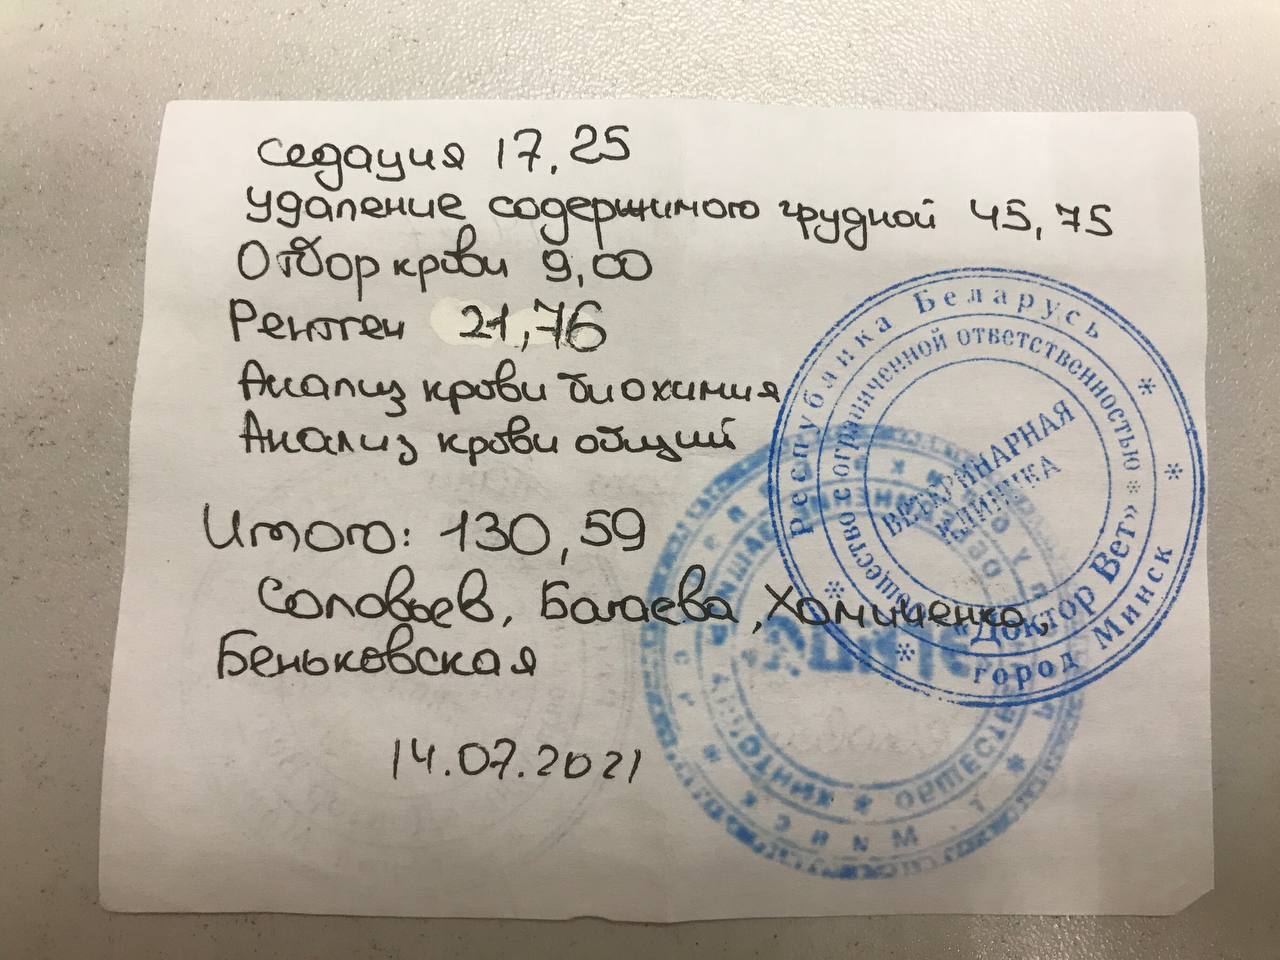 Седация 17,25
Удаление содержимого грудной 45,75
Отбор крови 9,00
Рентген 21,76
Анализ крови биохимия
Анализ крови общий
Итого: 130,59
Соловьев, Багаева, Хомиченко,
Беньковская
14.07.2021
Республика Беларусь
Общество с ограниченной ответственностью
«Доктор Вет»
город Минск
ВЕТЕРИНАРНАЯ
КЛИНИКА